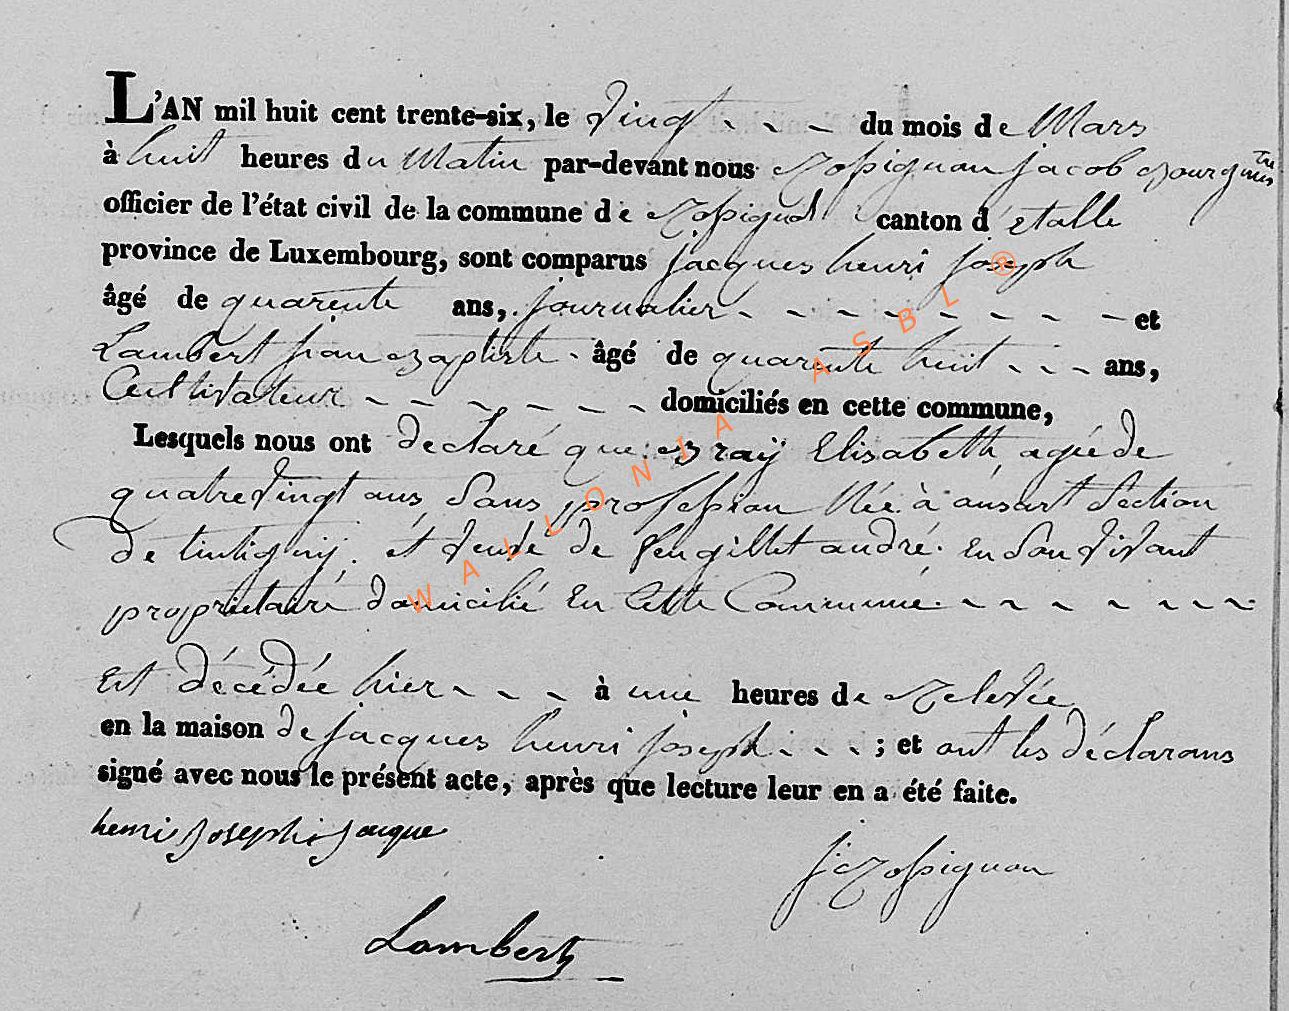 L'AN mil huit cent trente-six, le vingt - - - du mois de Mars
à huit heures du Matin par-devant nous Rossignon jacob Bourgmestre
officier de l'état civil de la commune de Rossignol canton d'etalle
province de Luxembourg, sont comparus jacques henri joseph
âgé de quarente ans, journalier - - - - - - - - - et
Lambert jean Baptiste - âgé de quarente huit - - - ans,
Cultivateur - - - - - - - domiciliés en cette commune,
Lesquels nous ont declaré que Braÿ Elisabeth, agée de
quatrevingt ans, Sans profession Née à ansart Section
De tintigny. et veuve de feu gillet andré. En Son vivant
propriétaire domicilié En Cette Commune. - - - - - - -
Est décédée hier - - - à une heures de Relevée
en la maison de jacques henri joseph - - - ; et ont les déclarans
signé avec nous le présent acte, après que lecture leur en a été faite.
henri joseph jacque
j Rossignon
Lambert
WALLONIA ASBL ®